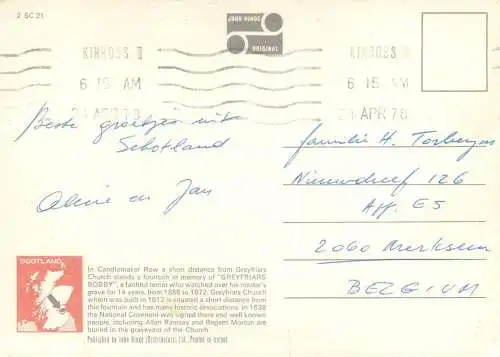 2 SC 21
JOHN HINDE
ORIGINAL
KINROSS
6 15 AM
21 APR 78
KINROSS
6 15 AM
21 APR 78
Beste groetjes uit
Schotland
en Jan
Familie H.
126
App. E5
2060 Merksem
BELGIUM
SCOTLAND
In Candlemaker Row a short distance from Greyfriars
Church stands a fountain in memory of "GREYFRIARS
BOBBY", a faithful terrier who watched over his master's
grave for 14 years, from 1858 to 1872. Greyfriars Church
which was built in 1612 is situated a short distance from
this fountain and has many historic associations. In 1638
the National Covenant was signed there and well known
people, including Allan Ramsay and Regent Morton are
buried in the graveyard of the Church.
Published by John Hinde (Distributors) Ltd., Printed in Ireland.